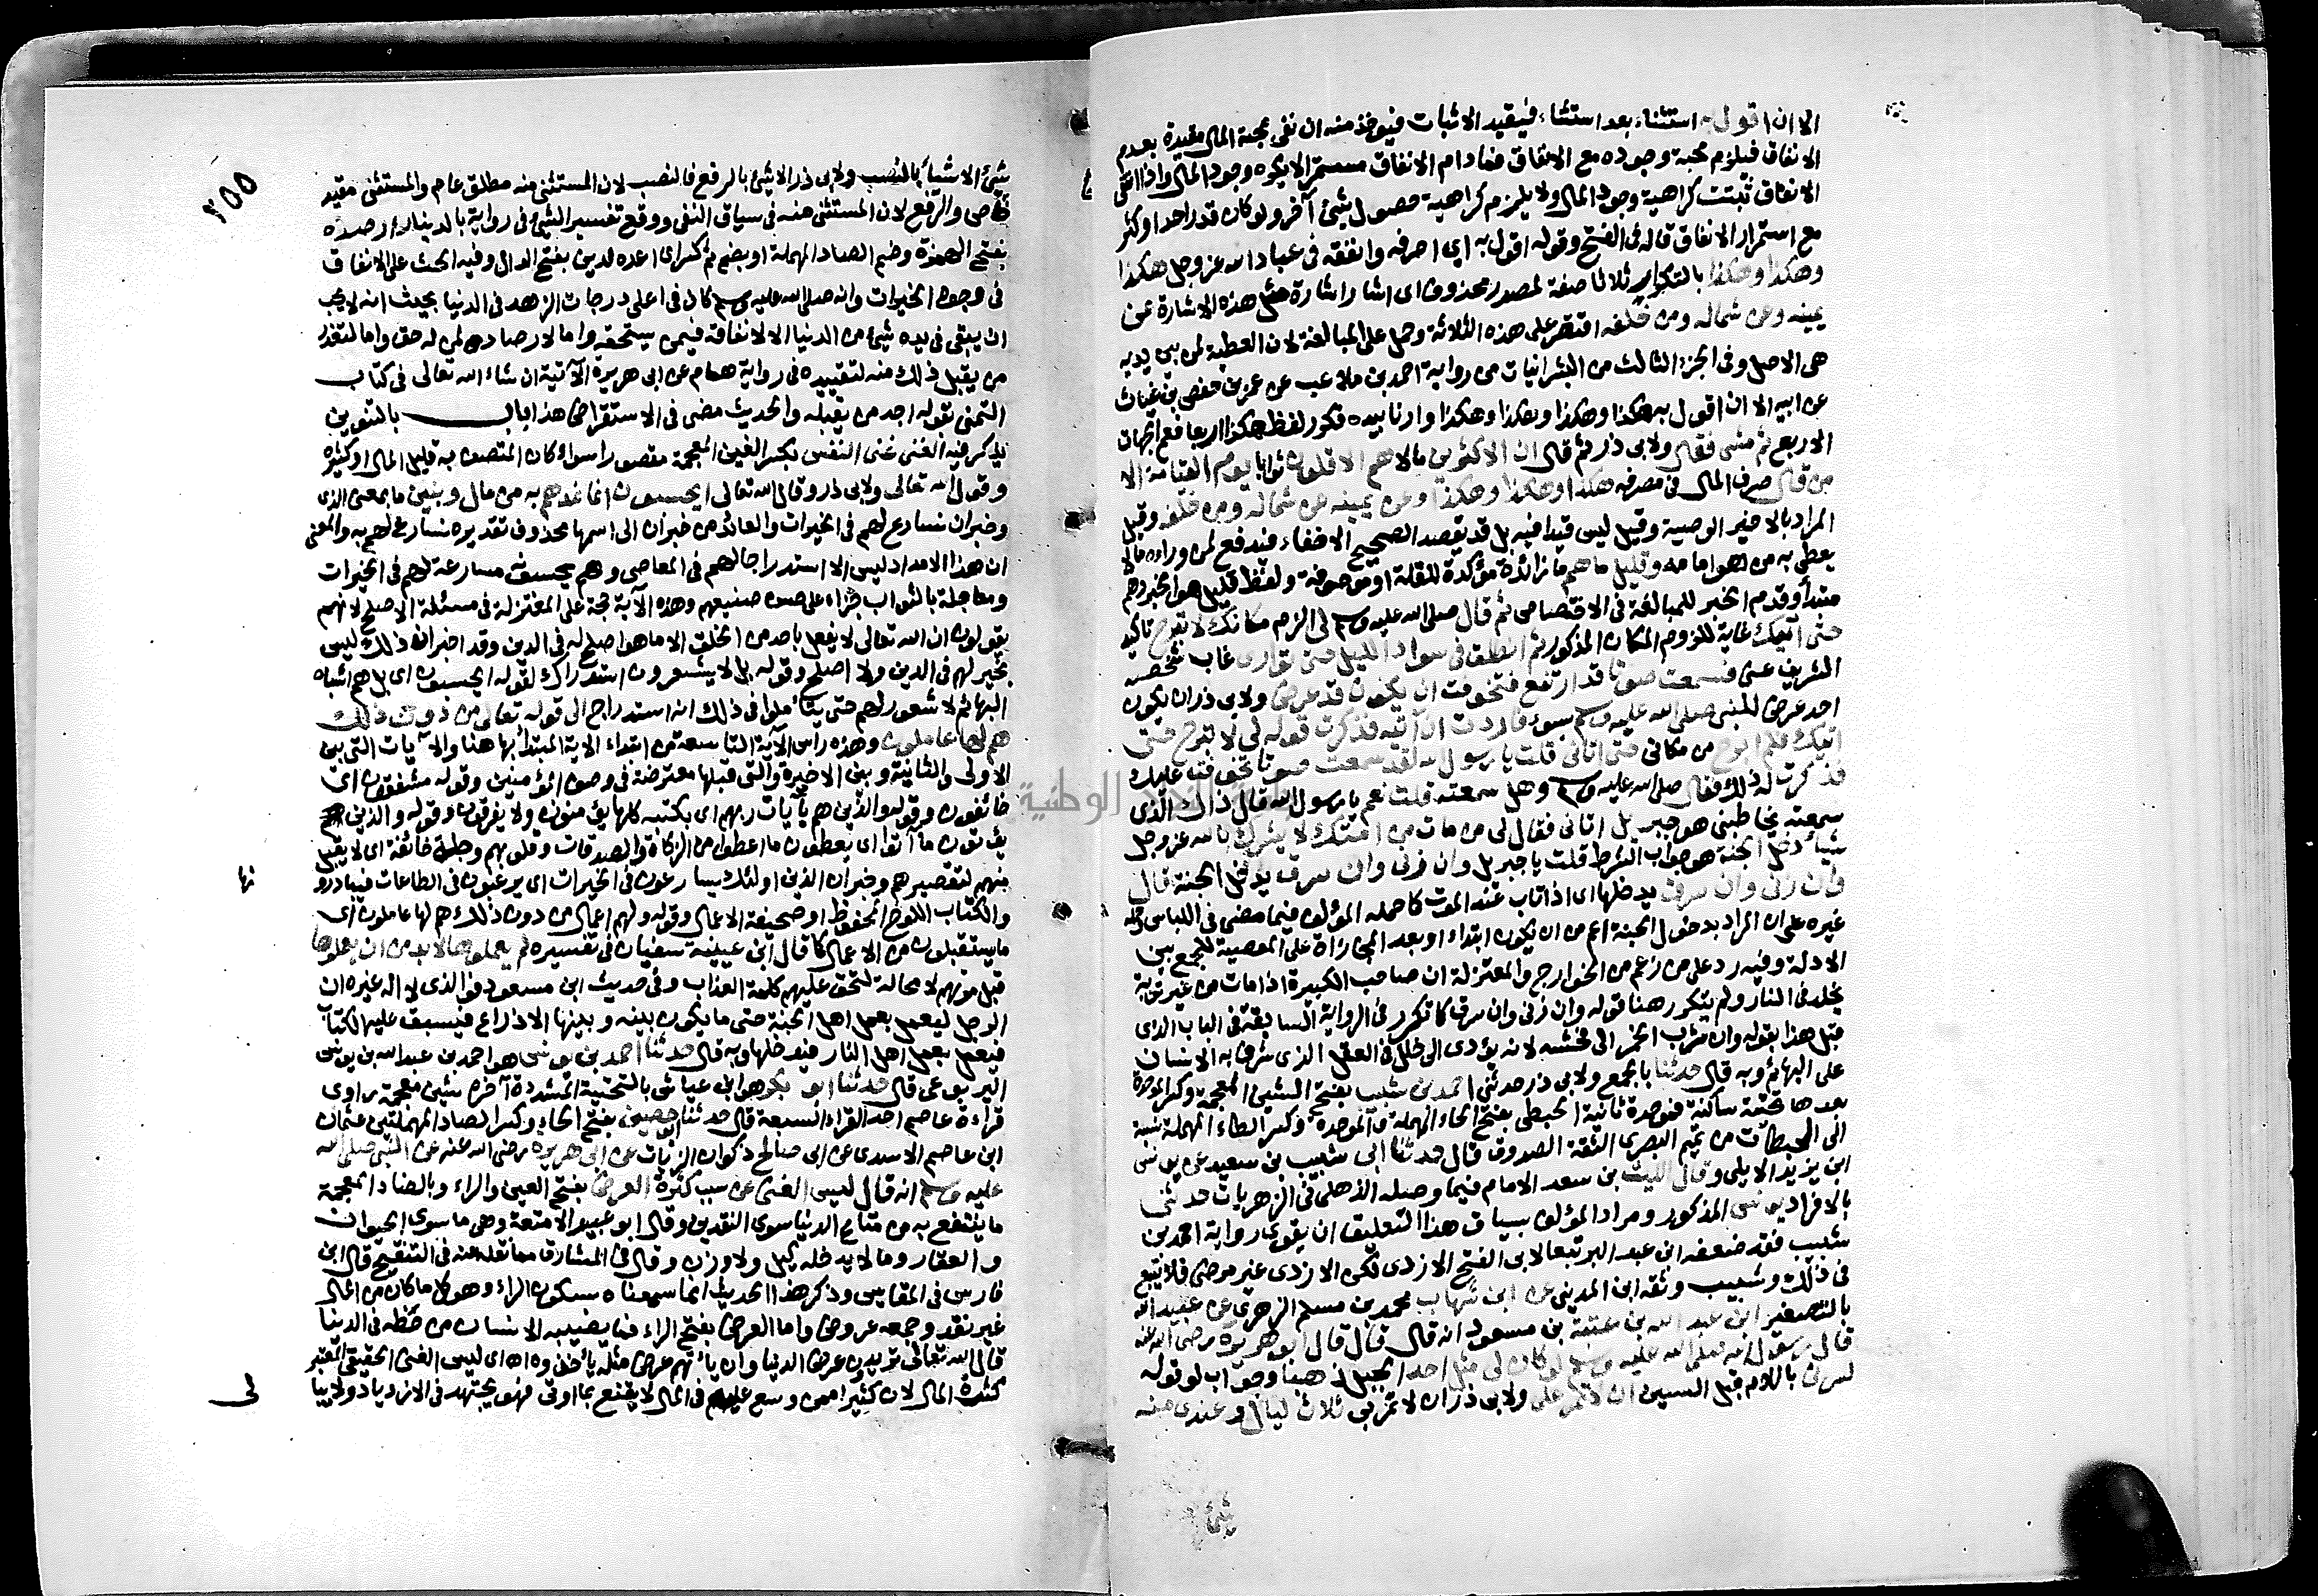 الا ان اقول به استثناء بعد استثناء فيفيد الاثبات فيؤخذ منه ان نفي محبة المال مقيدة بعدم
الانفاق فيلزم محبة وجوده مع الانفاق فمادام الانفاق مستمرا لا يكره وجود المال واذا انتفى
الانفاق ثبتت كراهية وجود المال ولا يلزم كراهية حصول شيئ آخر ولو كان قدر احد او اكثر
مع استمرار الانفاق قاله في الفتح وقوله اقول به اي اصرفه وانفقه في عباد الله عز وجل هكذا
وهكذا وهكذا بالتكرار ثلاثا صفة لمصدر محذوف اي اشار اشارة مثل هذه الاشارة عن
يمينه وعن شماله ومن خلفه اقتصر على هذه الثلاثة وحمل على المبالغة لان العطية لمن بين يديه
هي الاصل وفي الجزء الثالث من البشرانيات من رواية احمد بن ملاعب عن عمر بن حفص بن غياث
عن ابيه الا ان اقول به هكذا وهكذا وهكذا وهكذا وارنا بيده فكرر لفظ هكذا اربعا فعم الجهات
الاربع ثم مشى فقال ولابي ذر ثم قال ان الاكثرين مالا هم الاقلون ثوابا يوم القيامة الا
من قال صرف المال في مصرفه هكذا وهكذا وهكذا وعن يمينه عن شماله ومن خلفه وقيل
المراد بالاخير الوصية وقيل ليس قيدا فيه بل قد يقصد الصحيح الاخفاء فيدفع لمن وراءه مالا
يعطي به من هو امامه وقليل ما هم ما زائدة مؤكدة للقلة او موصوفة ولفظ قليل هو الخبر وهم
مبتدأ وقدم الخبر للمبالغة في الاختصاص ثم قال صلى الله عليه وسلم لي الزم مكانك لا تبرح تأكيد
حتى آتيك غاية للزوم المكان المذكور ثم انطلق في سواد الليل حتى توارى غاب شخصه
الشريف عني فسمعت صوتا قد ارتفع فتخوفت ان يكون قد عرض ولابي ذر ان يكون
احد عرض للنبي صلى الله عليه وسلم بسوء فاردت ان آتيه فذكرت قوله لي لا تبرح حتى
آتيك فلم ابرح من مكاني حتى اتاني قلت يا رسول الله لقد سمعت صوتا تخوفت عليك
فذكرت له ذلك فقال صلى الله عليه وسلم وهل سمعته قلت نعم يا رسول الله قال ذاك الذي
سمعته يخاطبني هو جبريل اتاني فقال لي من مات من امتك لا يشرك بالله عز وجل
شيئا دخل الجنة هو جواب الشرط قلت يا جبريل وان زنى وان سرق يدخل الجنة قال
وان زنى وان سرق يدخلها اي اذا تاب عند الموت كما حمله المؤلف فيما مضى في اللباس وحمله
غيره على ان المراد بدخول الجنة اعم من ان يكون ابتداء او بعد المجازاة على المعصية للجمع بين
الادلة وفيه رد على من زعم من الخوارج والمعتزلة ان صاحب الكبيرة اذا مات من غير توبة
يخلد في النار ولم يتكرر هنا قوله وان زنى وان سرق كما تكرر في الرواية السابقة في الباب الذي
قبل هذا بقوله وان شرب الخمر الى فحشه لانه يؤدي الى خلل في العقل الذي شرف به الانسان
على البهائم وبه قال حدثنا بالجمع ولابي ذر حدثني احمد بن شبيب بفتح الشين المعجمة وكسر الموحدة
بعدها تحتية ساكنة فموحدة ثانية الحبطي بفتح الحاء المهملة والموحدة وكسر الطاء المهملة نسبة
الى الحبطات من تميم البصري الثقة الصدوق قال حدثنا ابي شبيب بن سعيد عن يونس
ابن يزيد الايلي وقال الليث بن سعد الامام فيما وصله الذهلي في الزهريات حدثني
بالافراد يونس المذكور ومراد المؤلف بسياق هذا التعليق ان يقوي رواية احمد بن
شبيب فقد ضعفه ابن عبد البر تبعا لابي الفتح الازدي لكن الازدي غير مرضي فلا يتبع
في ذلك وشبيب وثقه ابن المديني عن ابن شهاب محمد بن مسلم الزهري عن عبيد الله
بالتصغير ابن عبد الله بن عتبة بن مسعود انه قال قال ابو هريرة رضي الله عنه
قال رسول الله صلى الله عليه وسلم لو كان لي مثل احد الجبل ذهبا وجواب لو قوله
لسرني باللام قبل السين ان لا تمر علي ولابي ذر ان لا تمر بي ثلاث ليال وعندي منه
شيئ
٣٥٥
شيئ الا شيئا بالنصب ولابي ذر الا شيئ بالرفع فالنصب لان المستثنى منه مطلق عام والمستثنى مقيد
خاص والرفع لان المستثنى منه في سياق النفي ووقع تفسير الشيئ في رواية بالدينار ارصده
بفتح الهمزة وضم الصاد المهملة او بضم ثم كسر اي اعده لدين بفتح الدال وفيه الحث على الانفاق
في وجوه الخيرات وانه صلى الله عليه وسلم كان في اعلى درجات الزهد في الدنيا بحيث انه لا يحب
ان يبقى في يده شيئ من الدنيا الا لانفاقه فيمن يستحقه واما لارصاده لمن له حق واما لتعذر
من يقبل ذلك منه لتقييده في رواية همام عن ابي هريرة الآتية ان شاء الله تعالى في كتاب
التمني بقوله اجد من يقبله والحديث مضى في الاستقراض هذا باب بالتنوين
يذكر فيه الغنى غنى النفس بكسر الغين المعجمة مقصورا سواء كان المتصف به قليل المال او كثيره
وقول الله تعالى ولابي ذر وقال الله تعالى ايحسبون ان ما نمدهم به من مال وبنين ما بمعنى الذي
وخبر ان نسارع لهم في الخيرات والعائد من خبر ان الى اسمها محذوف تقديره نسارع لهم به والمعنى
ان هذا الامداد ليس الا استدراجا لهم في المعاصي وهم يحسبونه مسارعة لهم في الخيرات
ومعاجلة بالثواب جزاء على حسن صنيعهم وهذه الآية حجة على المعتزلة في مسئلة الاصلح لانهم
يقولون ان الله تعالى لا يفعل باحد من الخلق الا ما هو اصلح له في الدين وقد اخبر ان ذلك ليس
بخير لهم في الدين ولا اصلح وقوله بل لا يشعرون استدراك لقوله ايحسبون اي بل هم اشباه
البهائم لا شعور لهم حتى يتأملوا في ذلك انه استدراج الى قوله تعالى من دون ذلك
هم لها عاملون وهذه رأس الآية التاسعة من ابتداء الاية المبتدأ بها هنا والآيات التي بين
الاولى والثانية وبين الاخيرة والتي قبلها معترضة في وصف المؤمنين وقوله مشفقون اي
خائفون وقوله والذين هم بآيات ربهم اي بكتبه كلها يؤمنون ولا يفرقون وقوله والذين
يؤتون ما آتوا اي يعطون ما اعطوا من الزكاة والصدقات وقلوبهم وجلة خائفة اي لا يقبل
منهم لتقصيرهم وخبر ان الذين اولئك يسارعون في الخيرات اي يرغبون في الطاعات فيبادرو
نها
والكتاب اللوح المحفوظ او صحيفة الاعمال وقوله ولهم اعمال من دون ذلك هم لها عاملون اي
ما يستقبلون من الاعمال كما قال ابن عيينة سفيان في تفسيره لم يعملوها لابد من ان يعملوها
قبل موتهم لا محالة لتحق عليهم كلمة العذاب وفي حديث ابن مسعود فوالذي لا اله غيره ان
الرجل ليعمل بعمل اهل الجنة حتى ما يكون بينه وبينها الا ذراع فيسبق عليه الكتاب
فيعمل بعمل اهل النار فيدخلها وبه قال حدثنا احمد بن يونس هو احمد بن عبد الله بن يونس
اليربوعي قال حدثنا ابو بكر هو ابن عياش بالتحتية المشددة آخره شين معجمة راوي
قراءة عاصم احد القراء السبعة قال حدثنا ابو حصين بفتح الحاء وكسر الصاد المهملتين عثمان
ابن عاصم الاسدي عن ابي صالح ذكوان الزيات عن ابي هريرة رضي الله عنه عن النبي صلى الله
عليه وسلم انه قال ليس الغنى عن سبب كثرة العرض بفتح العين والراء وبالضاد المعجمة
ما ينتفع به من متاع الدنيا سوى النقدين وقال ابو عبيد الامتعة وهي ما سوى الحيوان
والعقار وما لا يدخله كيل ولا وزن وقال في المشارق مما نقله عنه في التنقيح قال ابن
فارس في المقاييس وذكر هذا الحديث انما سمعناه بسكون الراء وهو كل ما كان من المال
غير نقد وجمعه عروض واما العرض بفتح الراء فما يصيبه الانسان من حظه في الدنيا
قال الله تعالى تريدون عرض الدنيا وان يأتهم عرض مثله يأخذوه اه اي ليس الغنى الحقيقي المعتبر
كثرة المال لان كثيرا ممن وسع عليهم في المال لا يقنع بما اوتي فهو يجتهد في الازدياد ولا يبا
لى